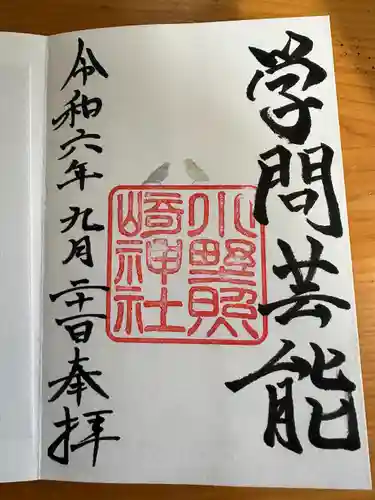 学問芸能
小野照
崎神社
令和六年九月二十一日奉拝